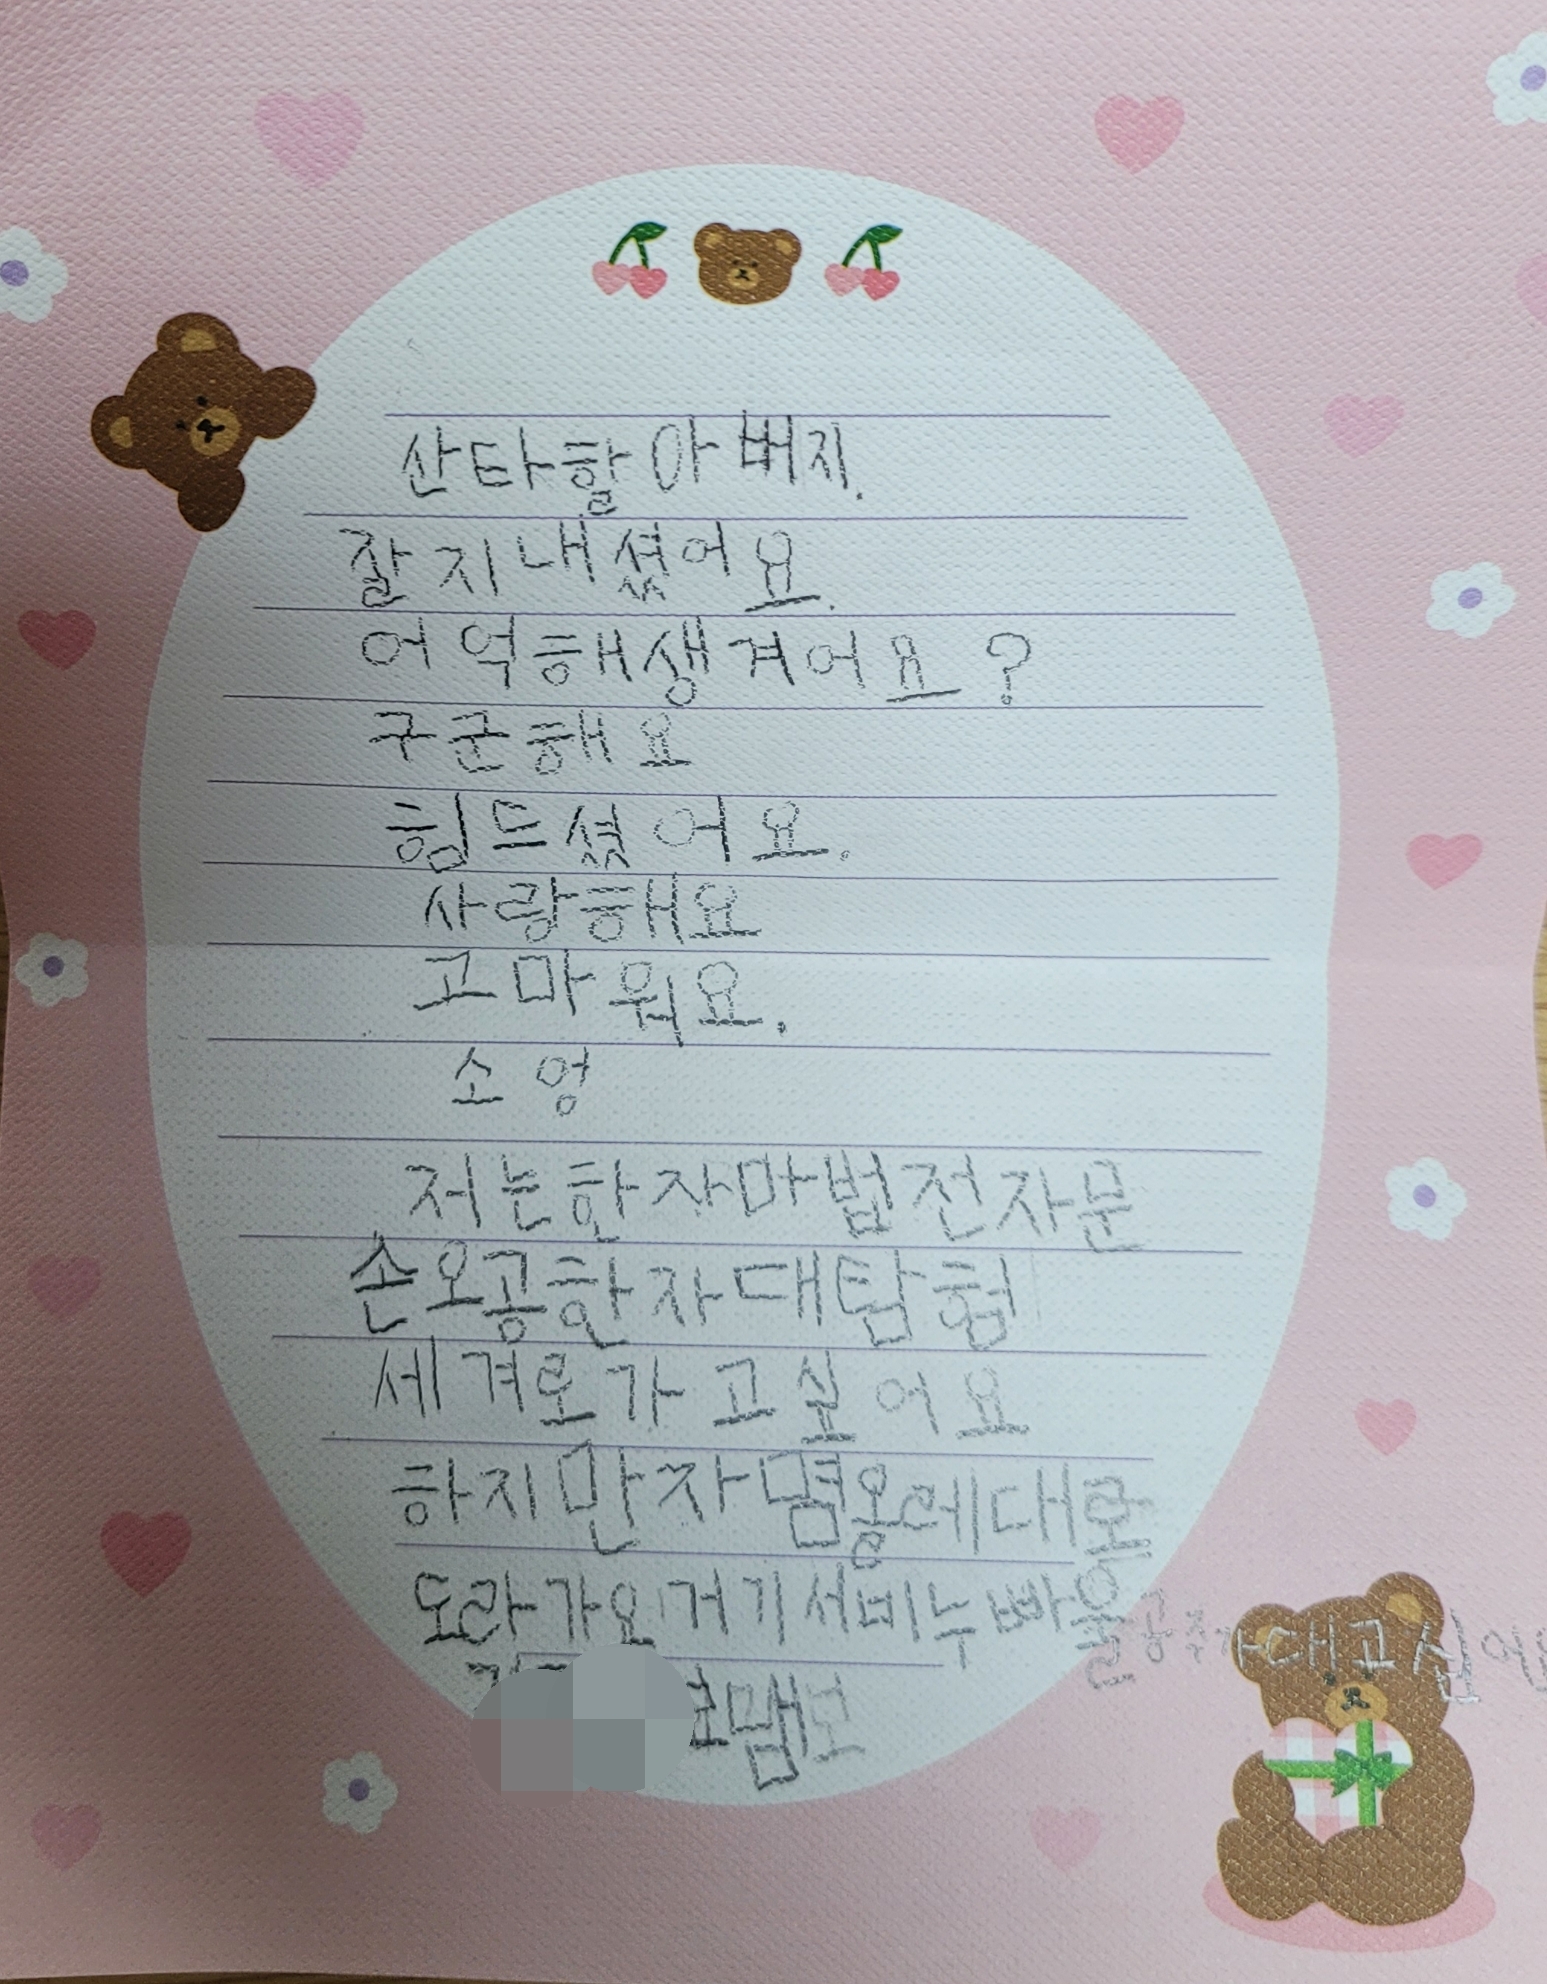 산타할아버지.
잘지내셨어요.
어억해생겨어요?
구군해요
힘드셨어요.
사랑해요
고마워요.
소영
저는한자마법전자문
손오공한자대탐험
세겨로가고싶어요
하지만자몀옹레대로
도라가요거기서비누빵울공주가대고십어요